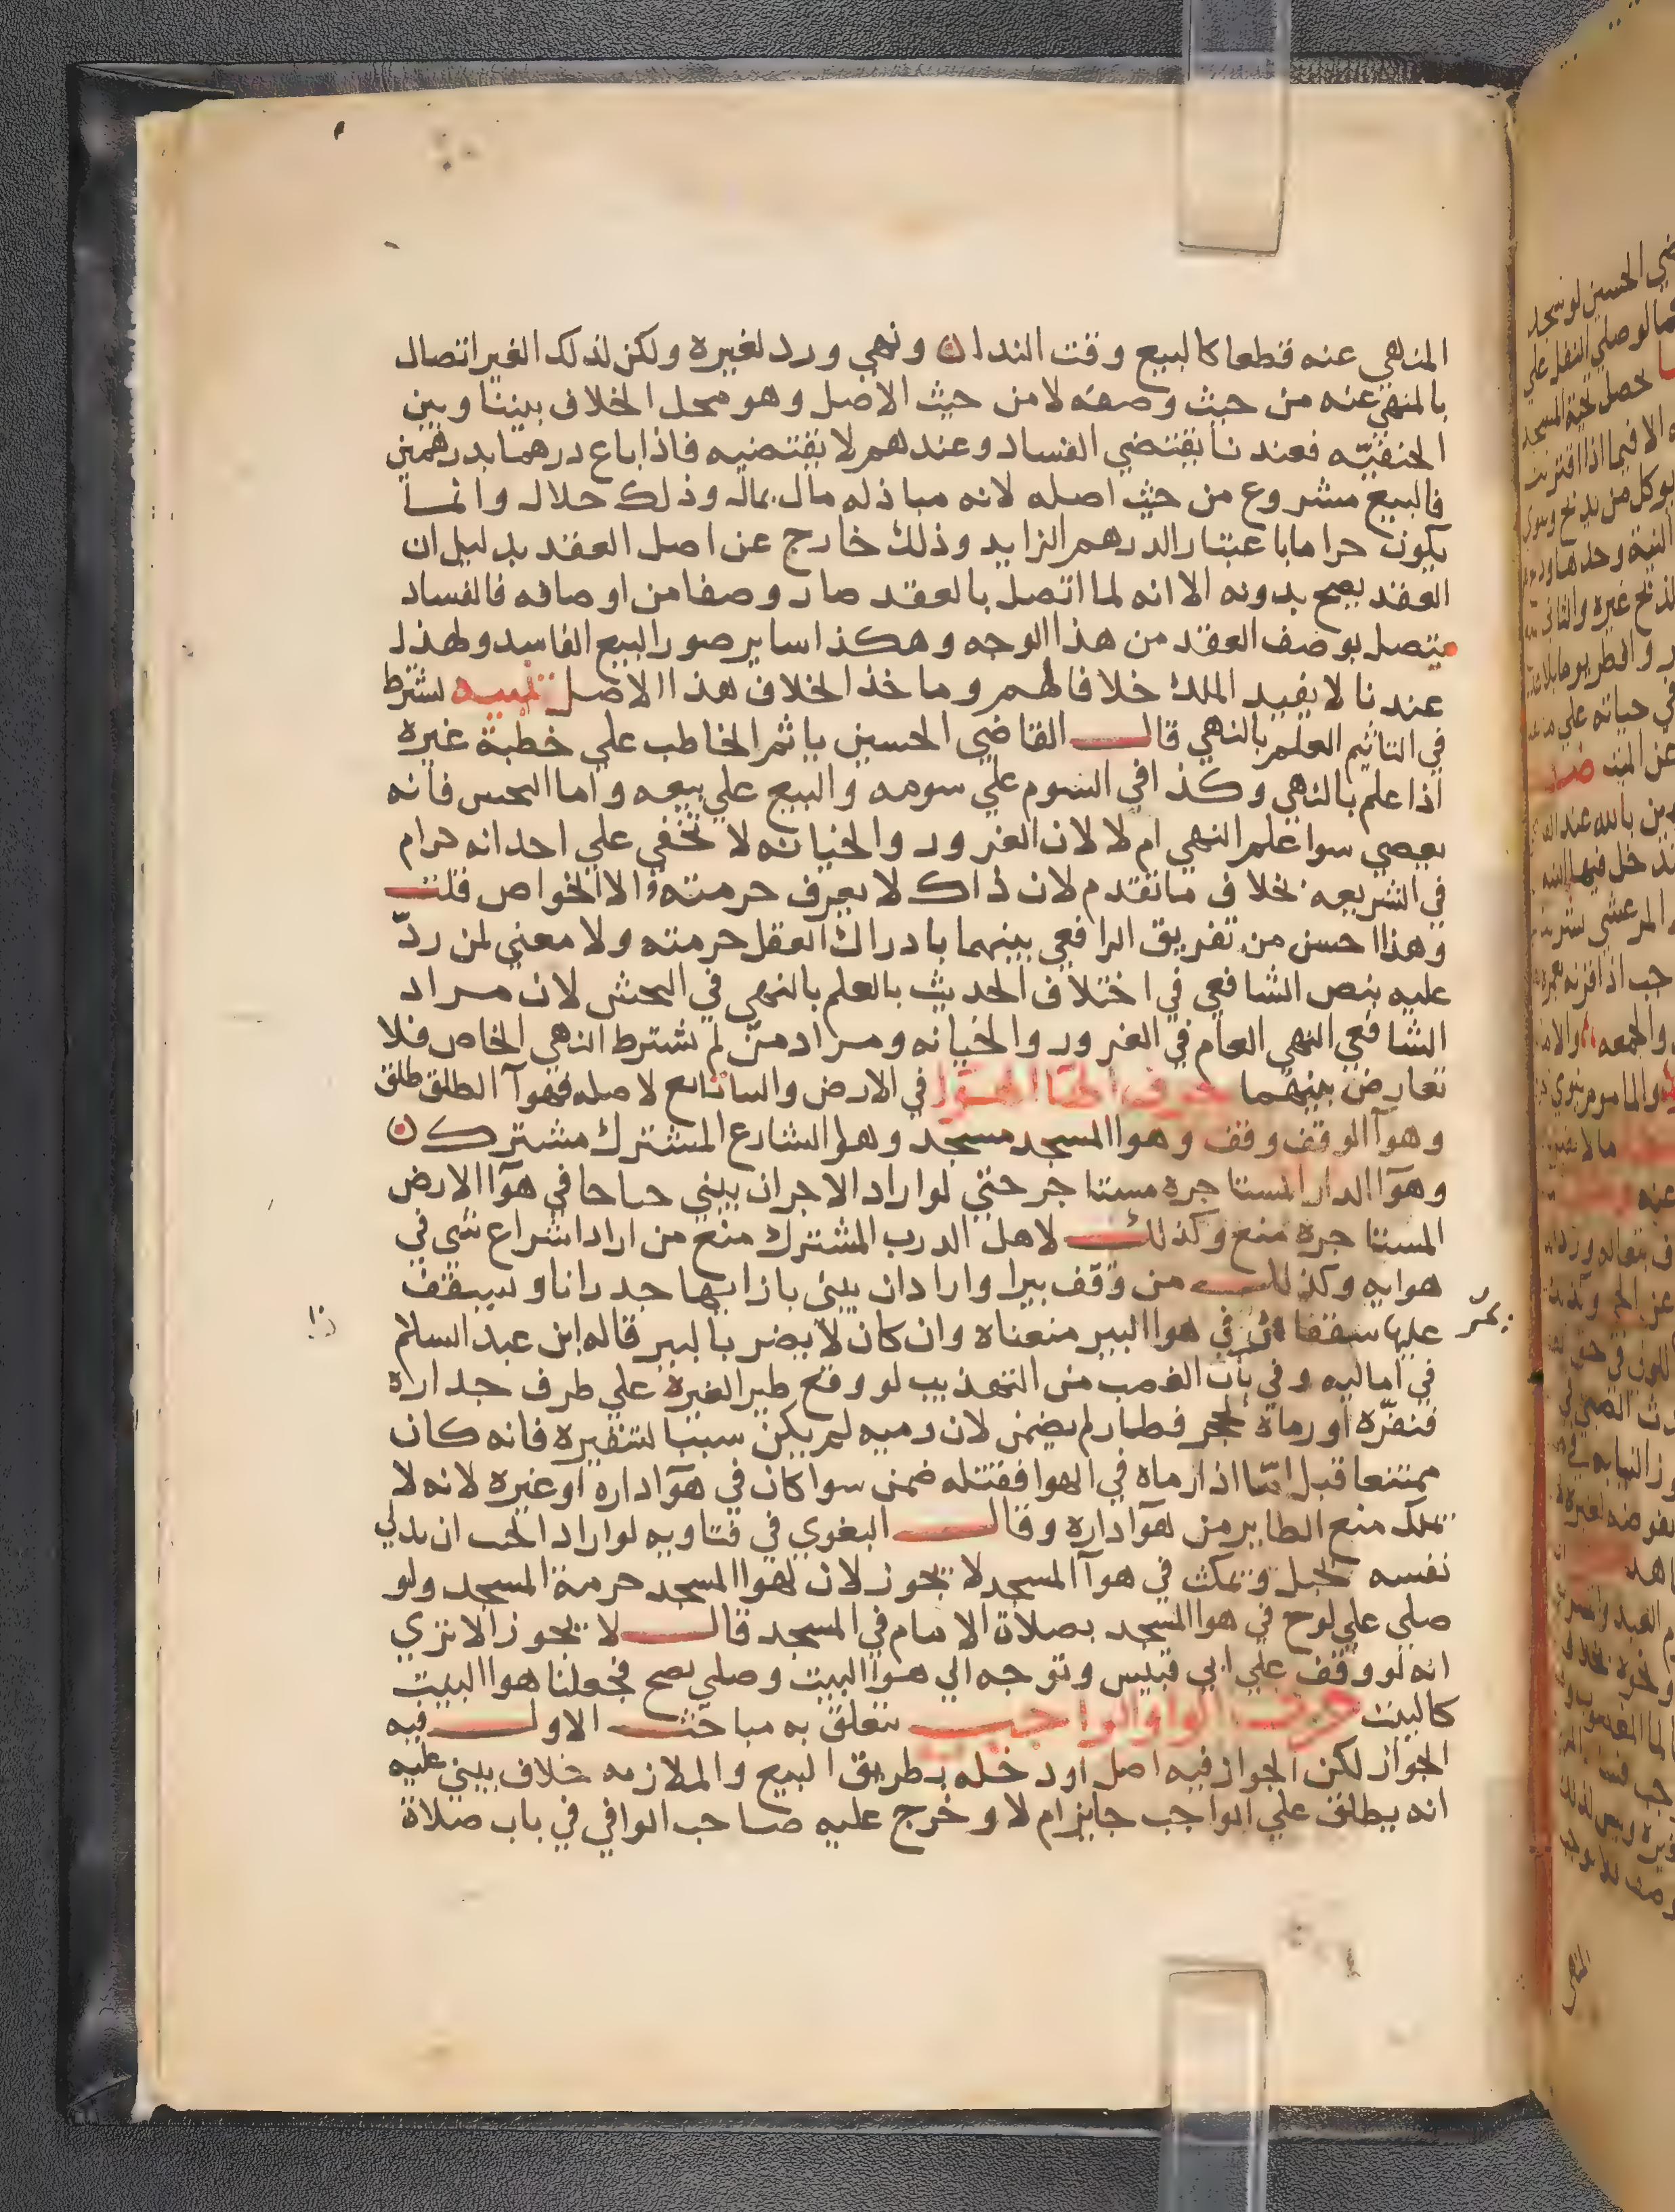 المنهي عنه قطعا كالبيع وقت الندا ن ونهي ورد لغيره ولكن لذلك الغير اتصال
بالمنهي عنه من حيث وصفه لا من حيث الاصل وهو محل الخلاف بيننا وبين
الحنفيّه فعندنا يقتضي الفساد وعندهم لا يقتضيه فاذا باع درهما بدرهمين
فالبيع مشروع من حيث اصله لانه مباذله مال بمال وذلك حلال وانما
يكون حراما باعتبار الدرهم الزايد وذلك خارج عن اصل العقد بدليل ان
العقد يصح بدونه الا انه لما اتصل بالعقد صار وصفا من اوصافه فالفساد
يتصل بوصف العقد من هذا الوجه وهكذا ساير صور البيع الفاسد ولهذا
عندنا لا يفيد الملك خلافا لهم وماخذ الخلاف هذا الاصل تنبيه يشترط
في التاثيم العلم بالنهي قال القاضي الحسين ياثم الخاطب علي خطبة غيره
اذا علم بالنهي وكذا في السوم علي سومه والبيع علي بيعه واما النجس فانه
يعصي سوا علم النهي ام لا لان الغرور والخيانه لا تخفي علي احد انه حرام
في الشريعه بخلاف ما تقدم لان ذاك لا يعرف حرمته الا الخواص قلت
وهذا احسن من تفريق الرافعي بينهما بادراك العقل حرمته ولا معني لمن ردّ
عليه بنص الشافعي في اختلاف الحديث بالعلم بالنهي في النجش لان مراد
الشافعي النهي العام في الغرور والخيانه ومراد من لم يشترط النهي الخاص فلا
تعارض بينهما حرف الها الهوا في الارض والبنا تابع لاصله فهوآ الطلق طلق
وهوآ الوقف وقف وهوا المسجد مسجد وهوا الشارع المشترك مشترك ن
وهوآ الدار المستاجره مستاجر حتي لو اراد الاجر ان يبني جناحا في هوآ الارض
المستاجره منع وكذلك لاهل الدرب المشترك منع من اراد اشراع شي في
هوايه وكذلك من وقف بيرا واراد ان يبني بازايها جدرانا ويسقف
عليها سقفا في هوا البير منعناه وان كان لا يضر بالبير قاله ابن عبد السلام
يمر
في اماليه وفي باب الغصب من التهذيب لو وقع طير لغيره علي طرف جداره
فنفّره او رماه بحجر فطار لم يضمن لان رميه لم يكن سببا لتنفيره فانه كان
ممتنعا قبل امّا اذا رماه في الهوا فقتله ضمن سوا كان في هوآ داره او غيره لانه لا
يملك منع الطاير من هوآ داره وقال البغوي في فتاويه لو اراد الجنب ان يدلي
نفسه بحبل ويمكث في هوآ المسجد لا يجوز لان لهوا المسجد حرمة المسجد ولو
صلي علي لوح في هوا المسجد بصلاة الامام في المسجد قال لا يجوز الا تري
انه لو وقف علي ابي قبيس وتوجه الي هوآ البيت وصلي يصح فجعلنا هوا البيت
كالبيت حرف الواو الواجب يتعلق به مباحث الاول فيه
الجواز لكن الجواز فيه اصل او دخله بطريق التبع والملازمه خلاف يبني عليه
انه يطلق علي الواجب جايز ام لا وخرج عليه صاحب الوافي في باب صلاة